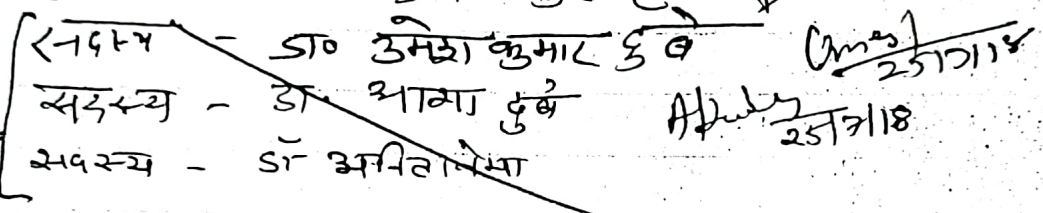 सदस्य - डा० उमेश कुमार दुबे 25/7/18
सदस्य - डा. आभा दुबे 25/7/18
सदस्य - डॉ अनिता